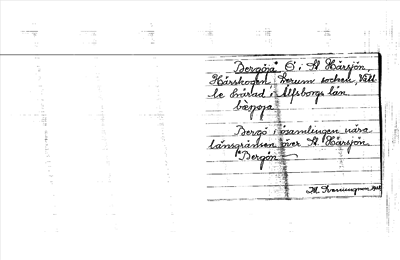 Bergöja Ö i St Härsjön,
Härskogen Lerum socken, Vätt-
le härad i Älfsborgs län.
bæjøja
Bergö i ösamlingen nära
länsgränsen över St. Härsjön.
Bergön
M.